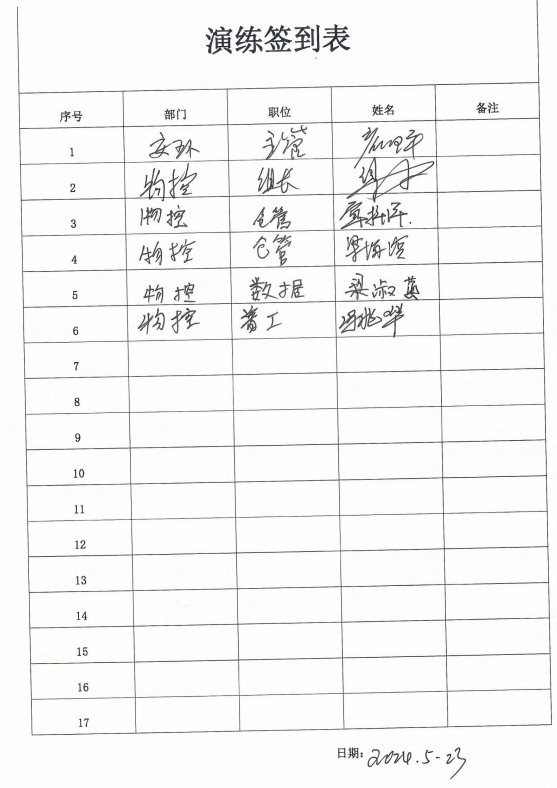 演练签到表
序号 部门 职位 姓名 备注
1 安环 主管
2 物控 组长
3 物控 仓管
4 物控 仓管
5 物控 数据 梁淑
6 物控 普工
7
8
9
10
11
12
13
14
15
16
17
日期: 2024.5-23